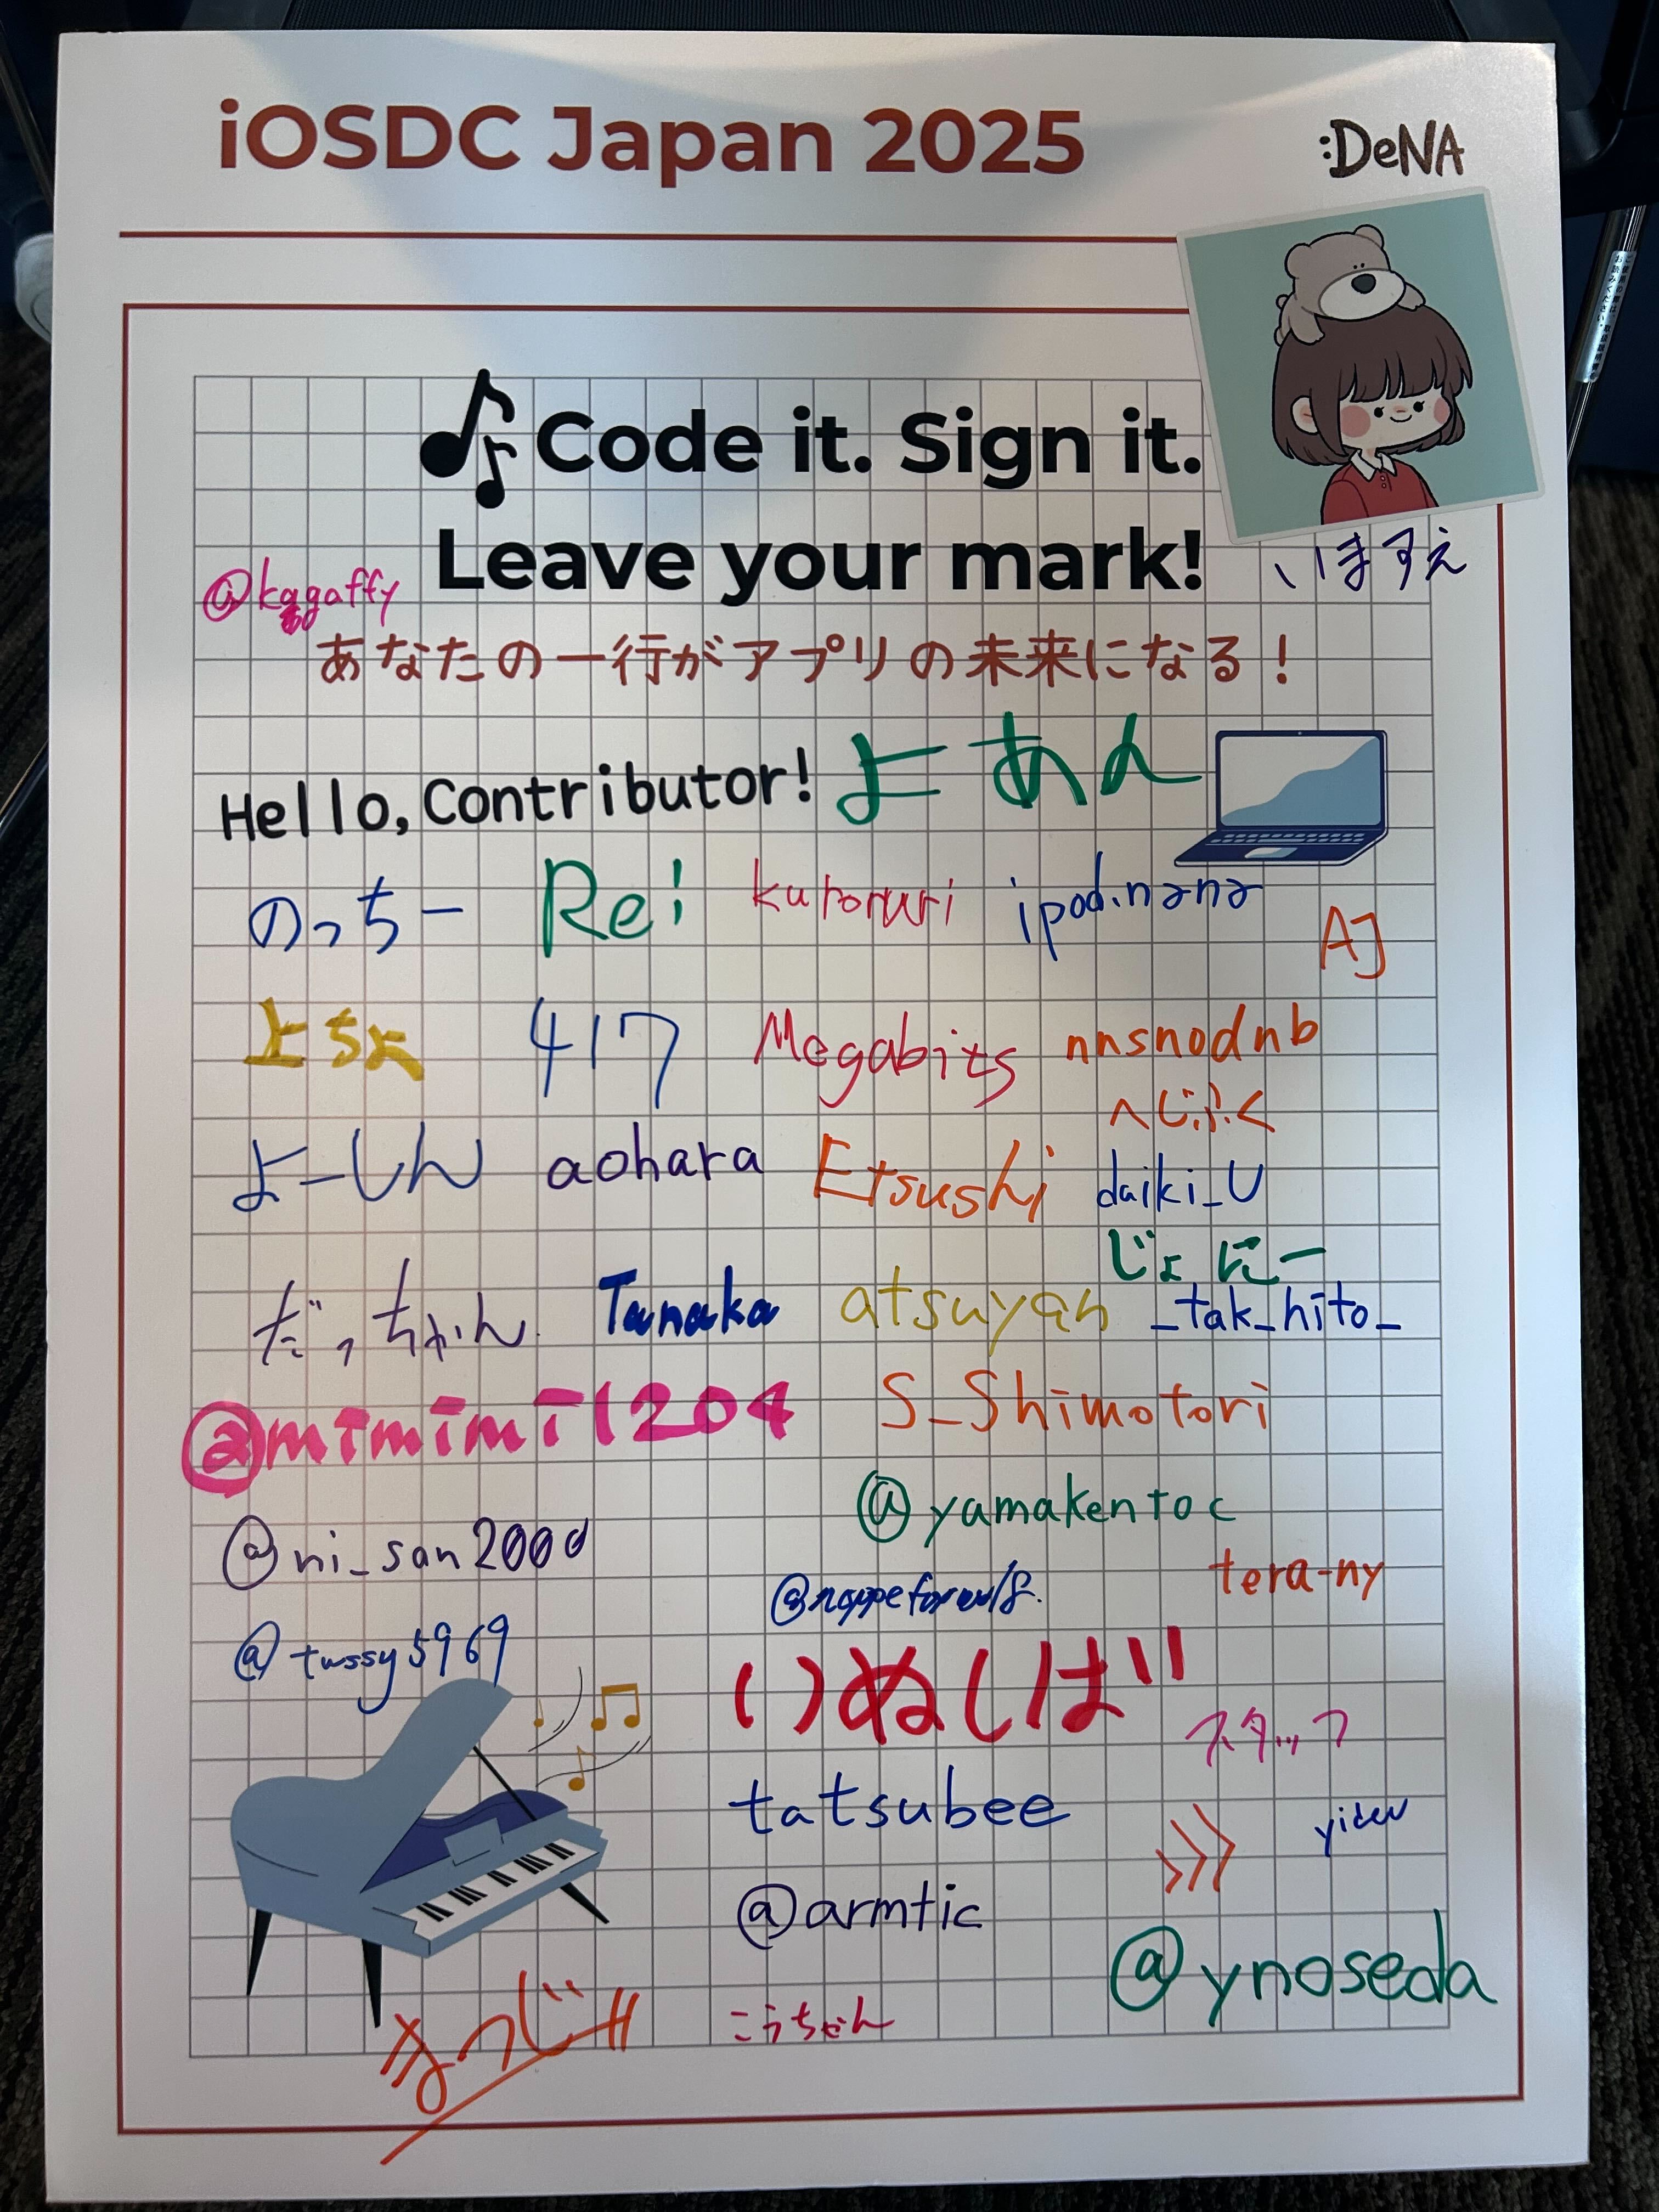 iOSDC Japan 2025
:DeNA
Code it. Sign it.
Leave your mark!
いますえ
@kagaffy
あなたの一行がアプリの未来になる！
Hello, Contributor!
よあん
のっちー
Rei
kuroruri
ipod.nano
AJ
よちよ
417
Megabits
nnsnodnb
へじふく
よーしん
aohara
Etsushi
daiki_U
じょにー
だっちゃん
Tanaka
atsuyan
_tak_hito_
@mimimi1204
S_Shimotori
@yamakentoc
@ni_san200d
tera-ny
@twssy5969
いぬしば
スタッフ
tatsubee
@armtic
@ynoseda
こうちゃん
まつじ